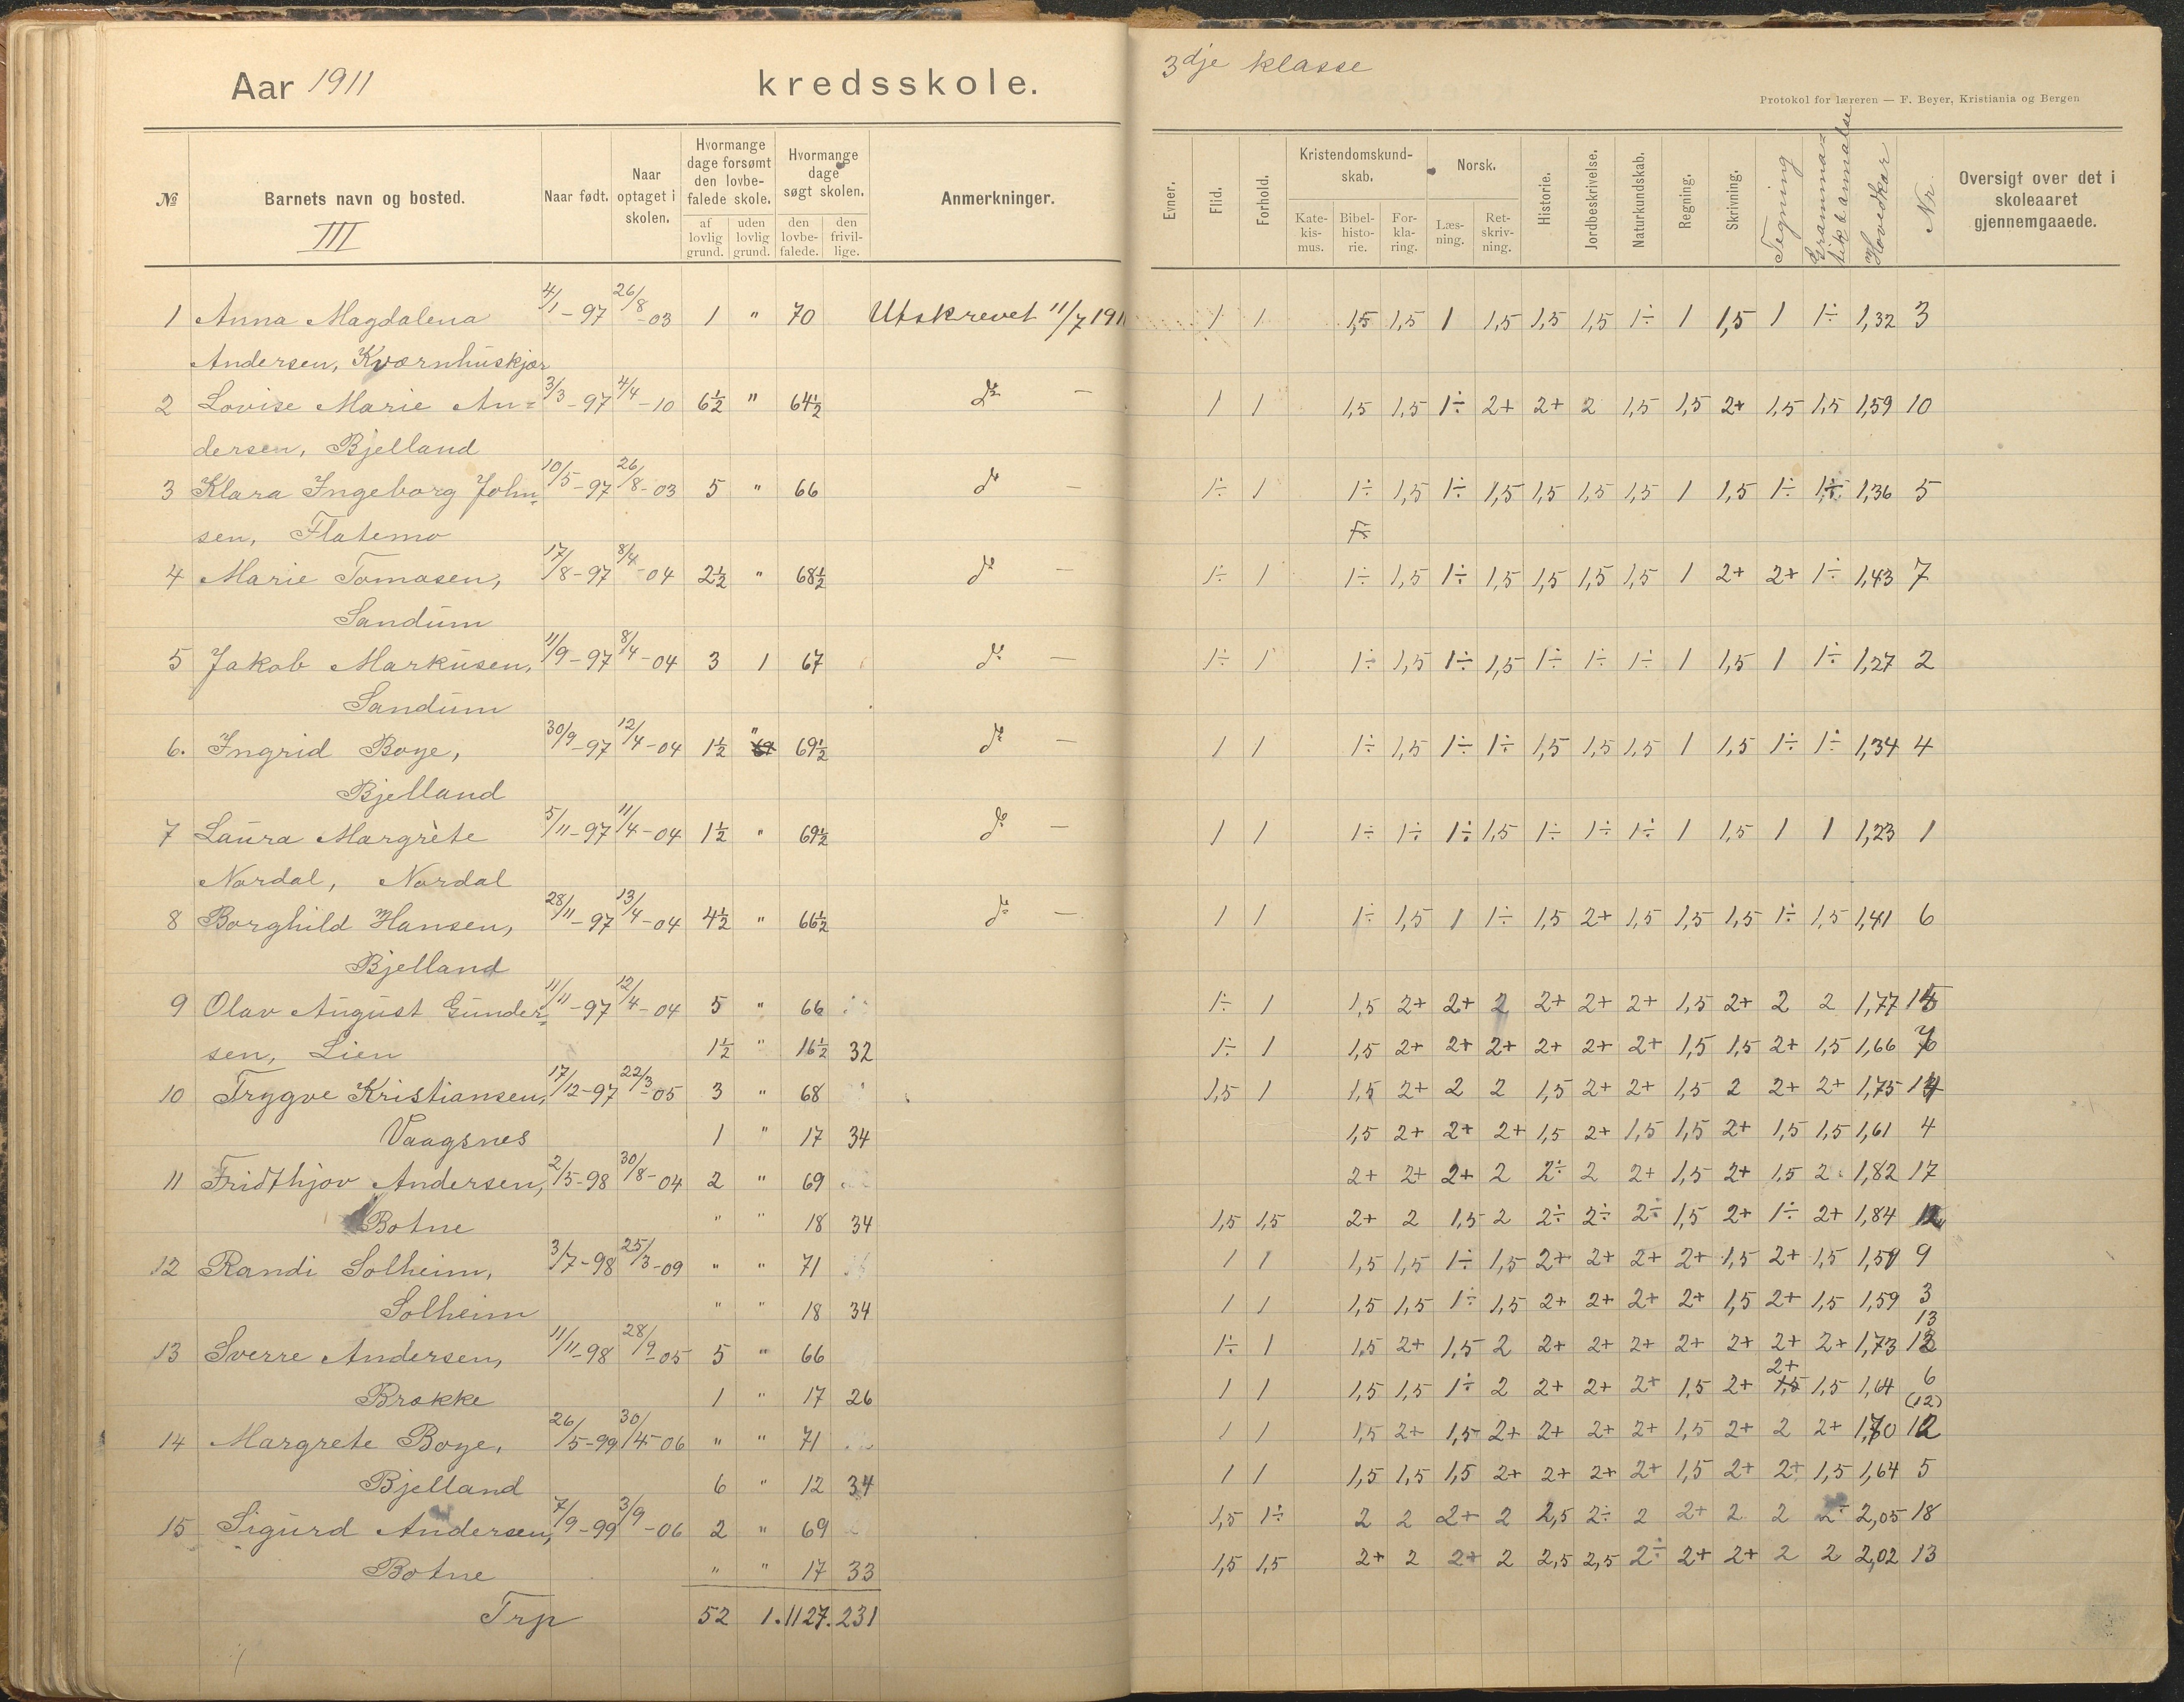 Aar 1911 kredsskole.
3dje klasse
Protokol for læreren — F. Beyer, Kristiania og Bergen
№ Barnets navn og bosted. Naar født. Naar optaget i skolen. Hvormange dage forsømt den lovbefalede skole. af lovlig grund. uden lovlig grund. Hvormange dage søgt skolen. den lovbefalede. den frivillige. Anmerkninger.
III
Evner. Flid. Forhold. Kristendomskundskab. Katekismus. Bibelhistorie. Forklaring. Norsk. Læsning. Retskrivning. Historie. Jordbeskrivelse. Naturkundskab. Regning. Skrivning. Tegning Hovedkar Nr. Oversigt over det i skoleaaret gjennemgaaede.
1 Anna Magdalena 4/1-97 26/8-03 1 " 70 Utskrevet 11/7 1911 1 1 1,5 1,5 1 1,5 1,5 1,5 1÷ 1 1,5 1 1÷ 1,32 3
Andersen, Kværnhuskjær
2 Lovise Marie An= 3/3-97 4/4-10 6½ " 64½ do — 1 1 1,5 1,5 1÷ 2+ 2+ 2 1,5 1,5 2+ 1,5 1,5 1,59 10
dersen, Bjelland
3 Klara Ingeborg John= 10/5-97 26/8-03 5 " 66 do — 1÷ 1 1÷ 1,5 1÷ 1,5 1,5 1,5 1,5 1 1,5 1÷ 1÷ 1,36 5
sen, Flatemo
4 Marie Tomasen, 17/8-97 8/4-04 2½ " 68½ do — 1÷ 1 1÷ 1,5 1÷ 1,5 1,5 1,5 1,5 1 2+ 2+ 1÷ 1,43 7
Sandum
5 Jakob Markusen, 11/9-97 8/4-04 3 1 67 do — 1÷ 1 1÷ 1,5 1÷ 1,5 1÷ 1÷ 1÷ 1 1,5 1 1÷ 1,27 2
Sandum
6. Ingrid Boye, 30/9-97 12/4-04 1½ " 69½ do — 1 1 1÷ 1,5 1÷ 1÷ 1,5 1,5 1,5 1 1,5 1÷ 1÷ 1,34 4
Bjelland
7 Laura Margrete 5/11-97 11/4-04 1½ " 69½ do — 1 1 1÷ 1÷ 1÷ 1,5 1÷ 1÷ 1÷ 1 1,5 1 1 1,23 1
Nordal, Nordal
8 Borghild Hansen, 28/11-97 13/4-04 4½ " 66½ do — 1 1 1÷ 1,5 1 1÷ 1,5 2+ 1,5 1,5 1,5 1÷ 1,5 1,41 6
Bjelland
9 Olav August Gunder= 11/11-97 12/4-04 5 " 66 1÷ 1 1,5 2+ 2+ 2 2+ 2+ 2+ 1,5 2+ 2 2 1,77 15
sen, Lien 1½ " 16½ 32 1÷ 1 1,5 2+ 2+ 2+ 2+ 2+ 2+ 1,5 1,5 2+ 1,5 1,66 7
10 Trygve Kristiansen, 17/12-97 22/3-05 3 " 68 1,5 1 1,5 2+ 2 2 1,5 2+ 2+ 1,5 2 2+ 2+ 1,75 14
Vaagsnes 1 " 17 34 1,5 2+ 2+ 2+ 1,5 2+ 1,5 1,5 2+ 1,5 1,5 1,61 4
11 Fridthjov Andersen, 2/5-98 30/8-04 2 " 69 2+ 2+ 2+ 2 2÷ 2 2+ 1,5 2+ 1,5 2 1,82 17
Botne " " 18 34 1,5 1,5 2+ 2 1,5 2 2÷ 2÷ 2÷ 1,5 2+ 1÷ 2+ 1,84 12
12 Randi Solheim, 3/7-98 25/3-09 " " 71 1 1 1,5 1,5 1÷ 1,5 2+ 2+ 2+ 2+ 1,5 2+ 1,5 1,59 9
Solheim " " 18 34 1 1 1,5 1,5 1÷ 1,5 2+ 2+ 2+ 2+ 1,5 2+ 1,5 1,59 3
13
13 Sverre Andersen, 11/11-98 28/9-05 5 " 66 1÷ 1 1,5 2+ 1,5 2 2+ 2+ 2+ 2+ 2+ 2+ 2+ 1,73
Brokke 1 " 17 26 1 1 1,5 1,5 1÷ 2 2+ 2+ 2+ 1,5 2+ 2+ 1,5 1,64 6
(12)
14 Margrete Boye, 26/5-99 30/4-06 " " 71 1 1 1,5 2+ 1,5 2+ 2+ 2+ 2+ 1,5 2+ 2 2+ 1,70 12
Bjelland 6 " 12 34 1 1 1,5 1,5 1,5 2+ 2+ 2+ 2+ 1,5 2+ 2+ 1,5 1,64 5
15 Sigurd Andersen, 7/9-99 3/9-06 2 " 69 1,5 1÷ 2 2 2+ 2 2,5 2÷ 2 2+ 2 2 2÷ 2,05 18
Botne " " 17 33 1,5 1,5 2+ 2 2+ 2 2,5 2,5 2÷ 2+ 2+ 2 2 2,02 13
Trp 52 1. 1127. 231